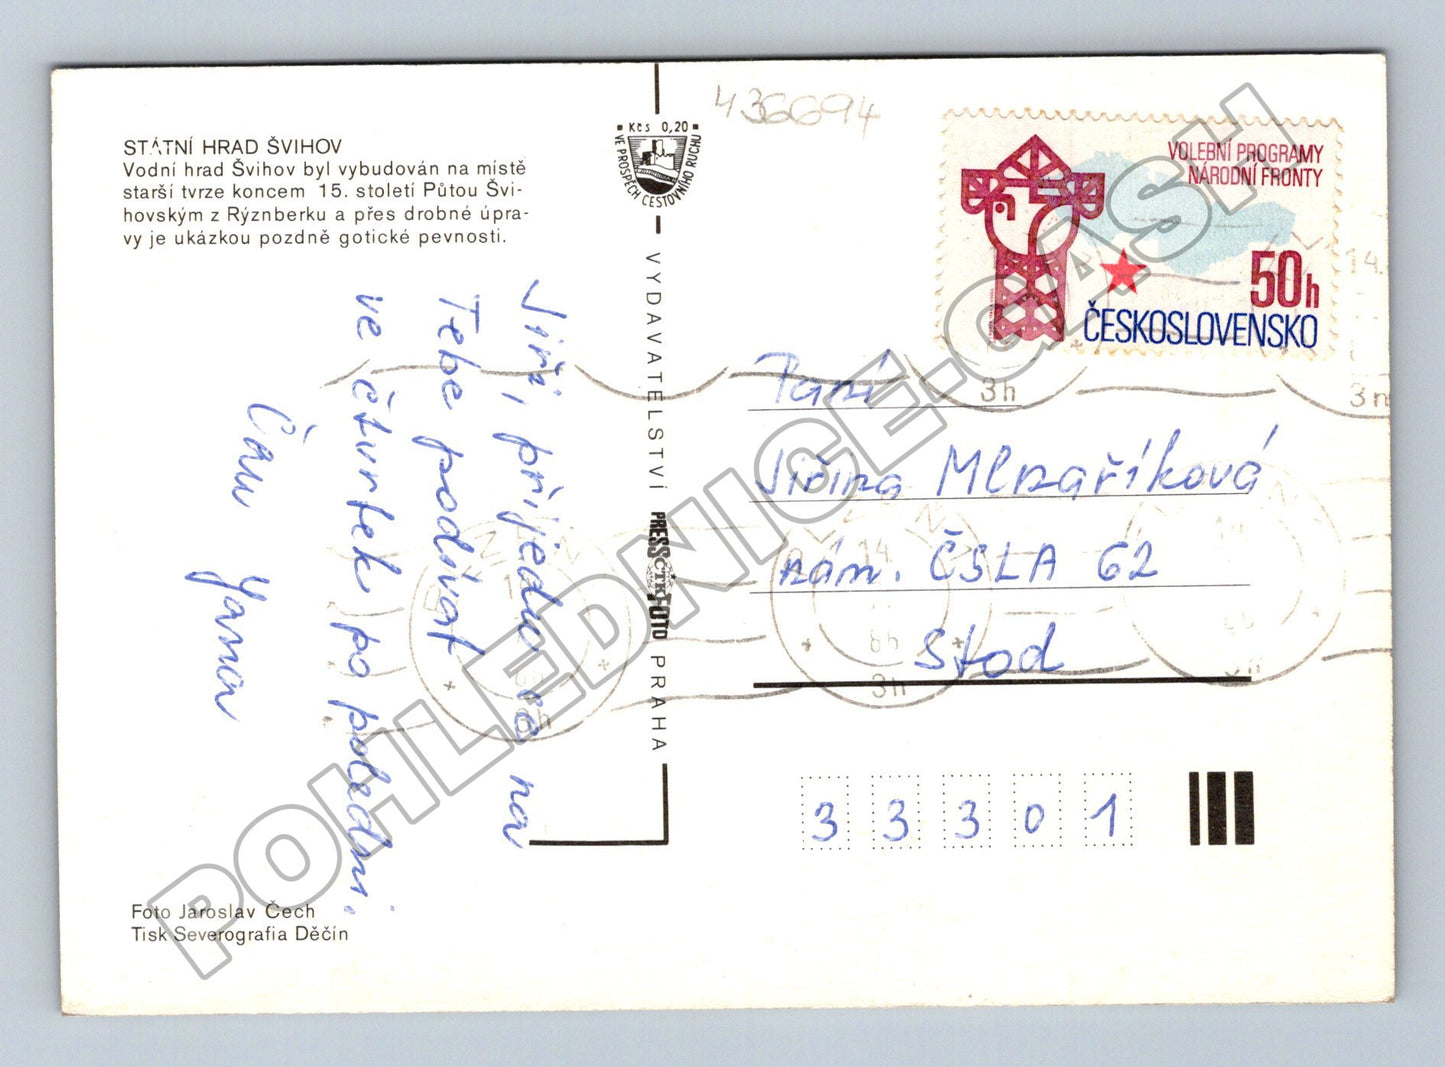 STÁTNÍ HRAD ŠVIHOV
Vodní hrad Švihov byl vybudován na místě
starší tvrze koncem 15. století Půtou Švi-
hovským z Rýznberku a přes drobné úpra-
vy je ukázkou pozdně gotické pevnosti.
Jiři, přijedu na
Tebe podívat
ve čtvrtek po poledni.
Čau Yana
Foto Jaroslav Čech
Tisk Severografia Děčín
Kčs 0,20
VE PROSPĚCH CESTOVNÍHO RUCHU
VYDAVATELSTVÍ PRESSFOTO PRAHA
ČTK
436694
VOLEBNÍ PROGRAMY
NÁRODNÍ FRONTY
50h
ČESKOSLOVENSKO
Paní
Jiřina Mlnaříková
nám. ČSLA 62
Stod
33301
14
86
3h
3h
POHLEDNICE-CASH